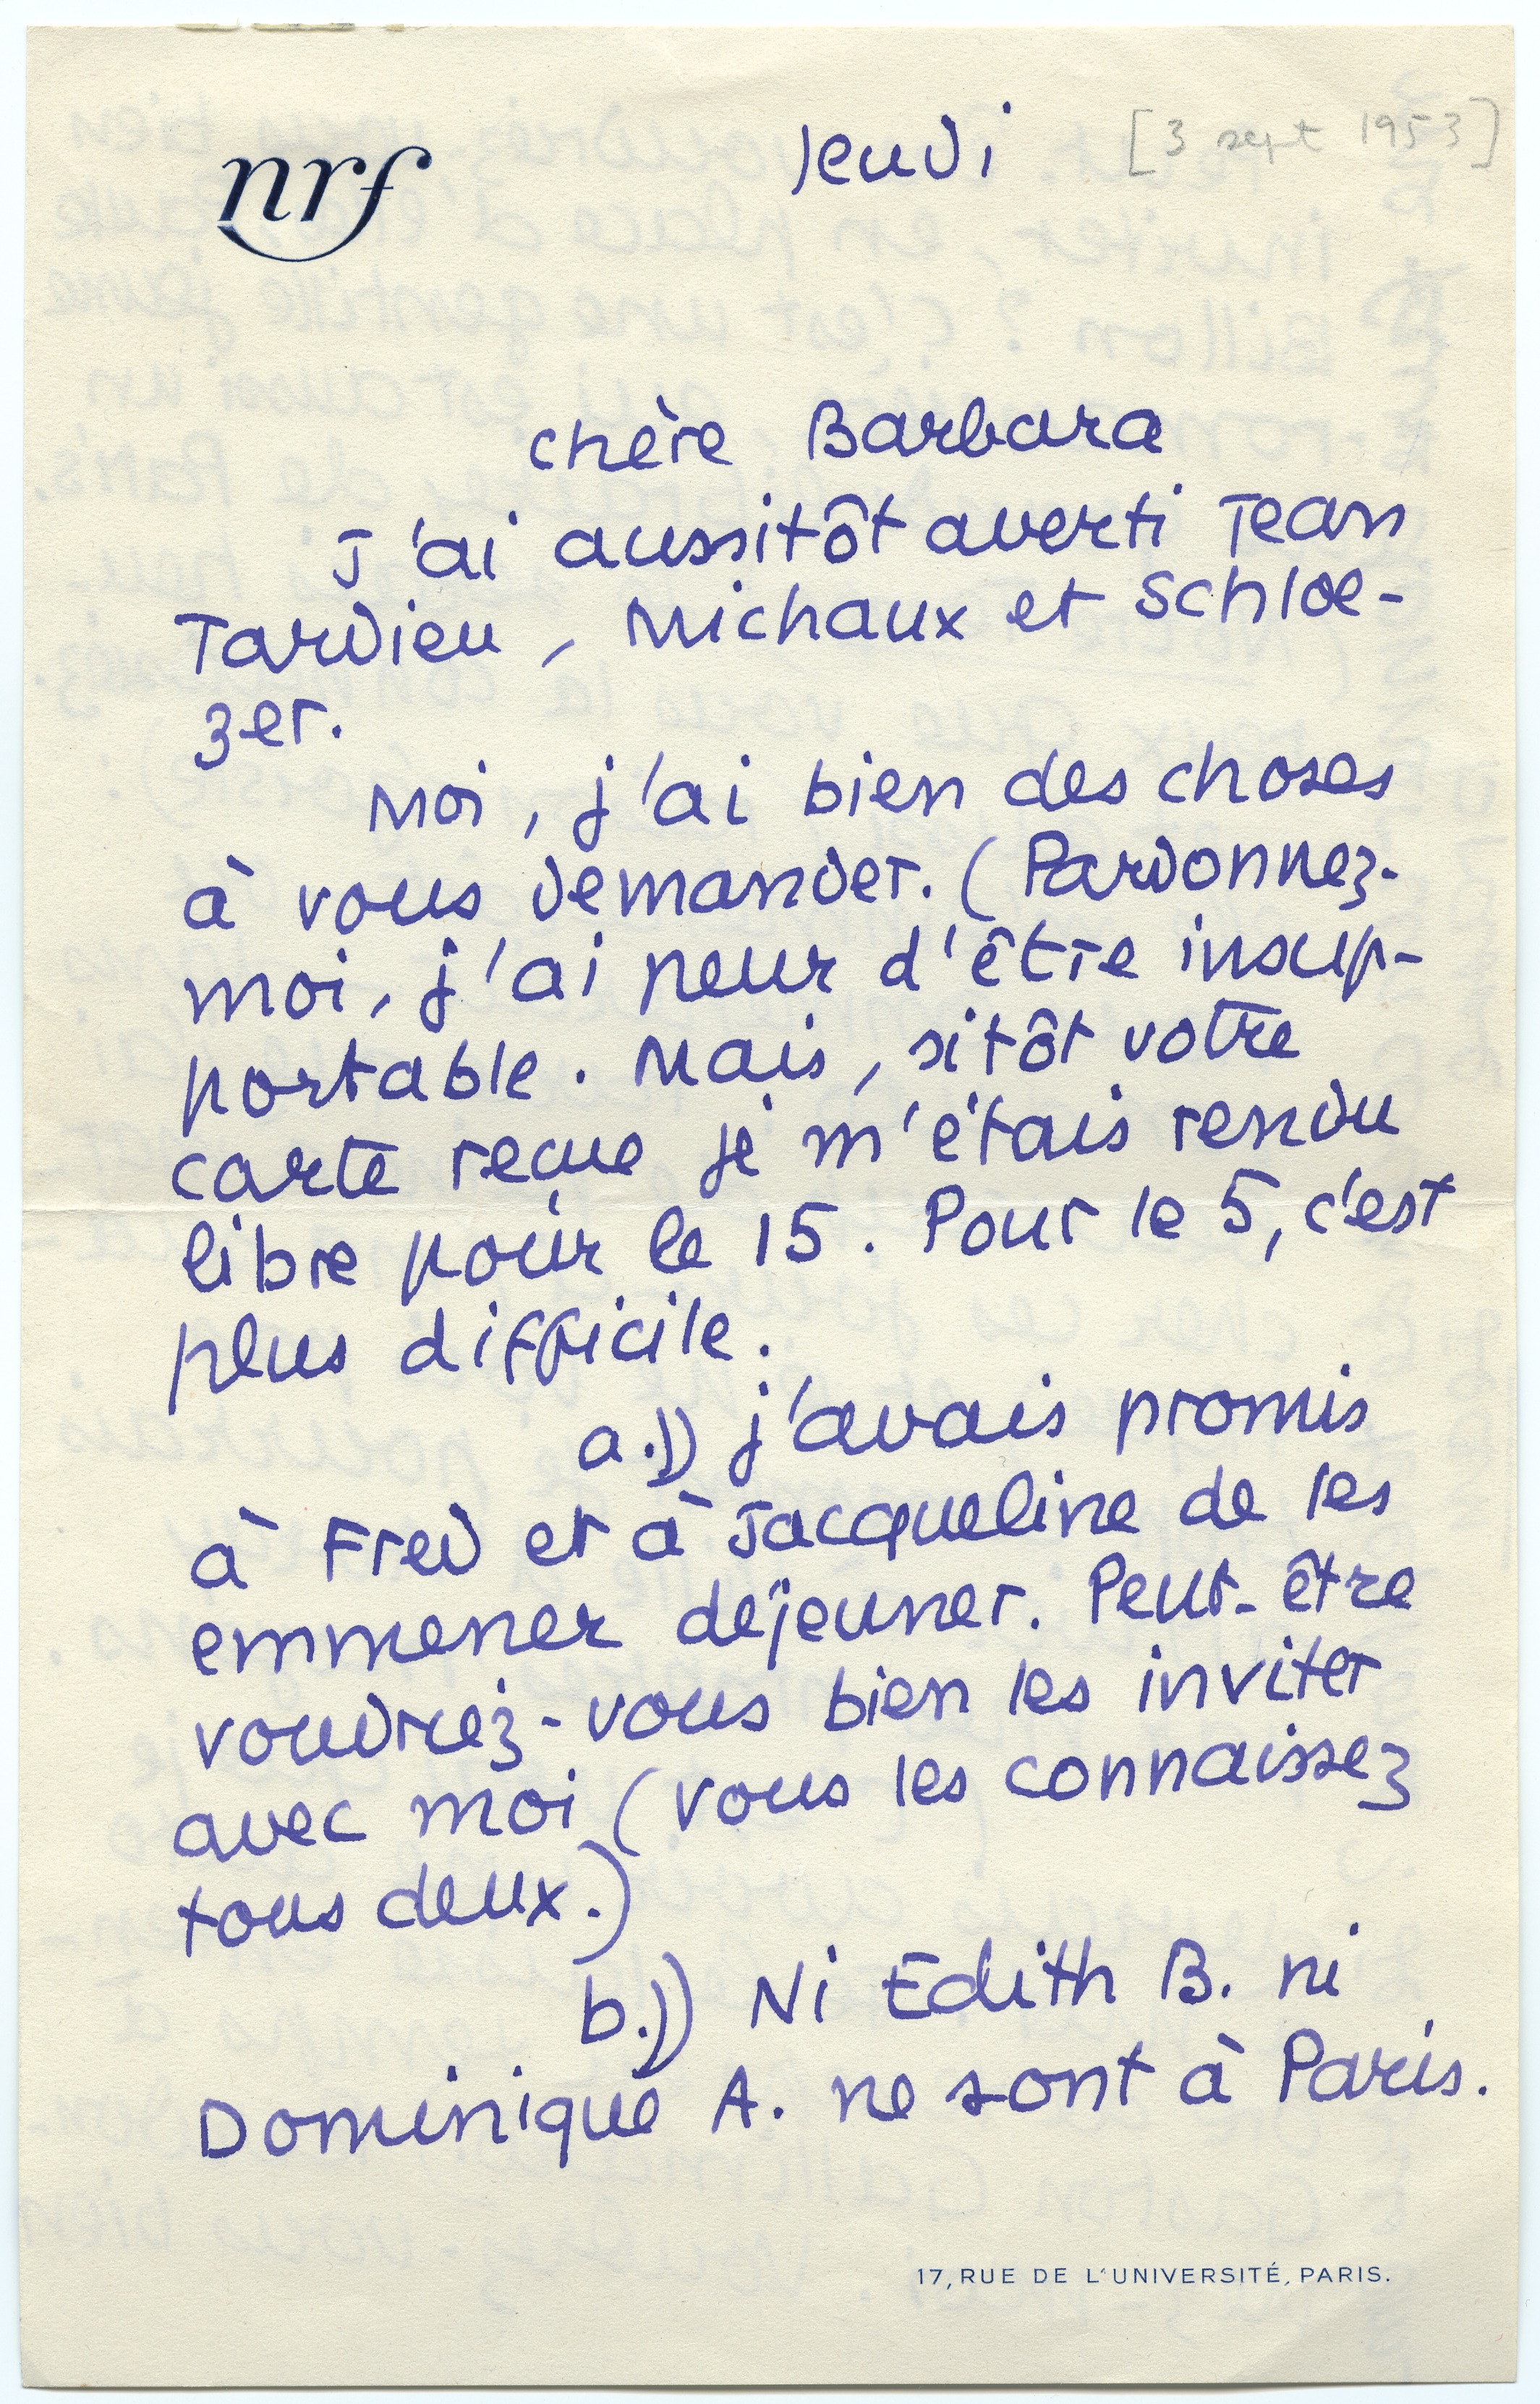 nrf
Jeudi [3 sept 1953]
chère Barbara
J'ai aussitôt averti Jean
Tardieu, Michaux et Schloe-
zer.
Moi, j'ai bien des choses
à vous demander. (Pardonnez-
moi, j'ai peur d'être insup-
portable. Mais, sitôt votre
carte reçue je m'étais rendu
libre pour le 15. Pour le 5, c'est
plus difficile.
a.)) j'avais promis
à Fred et à Jacqueline de les
emmener déjeuner. Peut-être
voudriez-vous bien les inviter
avec moi (vous les connaissez
tous deux.)
b.)) Ni Edith B. ni
Dominique A. ne sont à Paris.
17, RUE DE L'UNIVERSITÉ, PARIS.